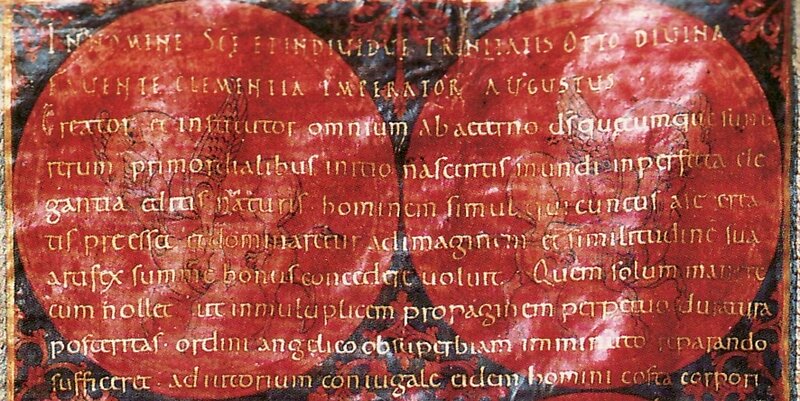 IN NOMINE SCE ET INDIVIDUE TRINITATIS OTTO DIVINA
FAVENTE CLEMENTIA IMPERATOR AUGUSTUS
Creator et institutor omnium ab aeterno ds quecumque sunt
rerum primordialibus initio nascentis mundi in perfecta ele
gantia editis naturis. hominem simul qui cunctis a se crea
tis preesset et dominaretur ad imaginem et similitudinē suā
artifex summe bonus concedere voluit. Quem solum manere
cum nollet ut in multiplicem propaginem perpetuo duratura
posteritas. ordini angelico ob superbiam imminuto reparando
sufficeret. adiutorium coniugale eidem homini costa corpori